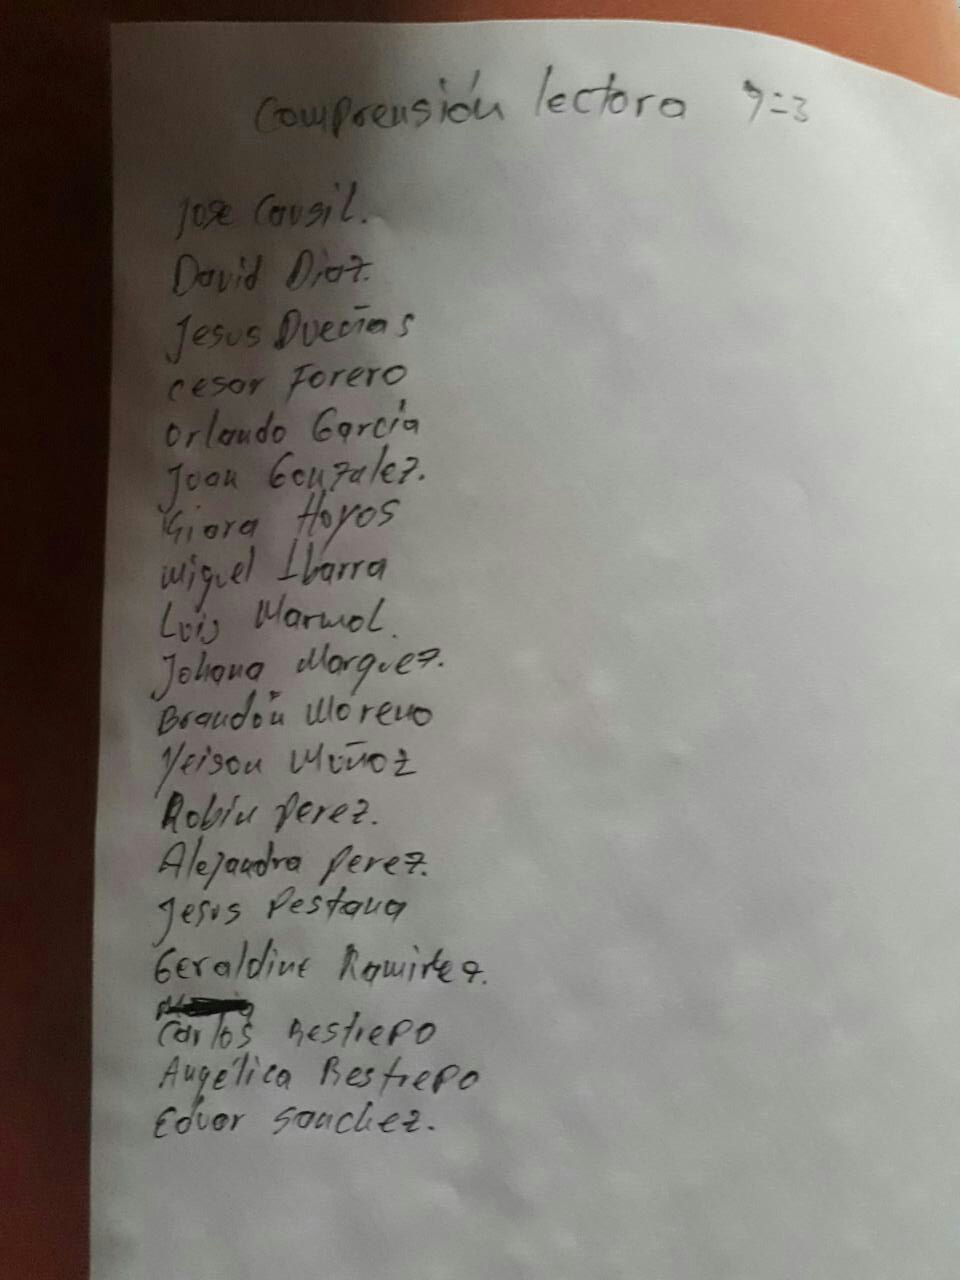 Comprensión lectora 9=3
Jose Causil.
David Diaz.
Jesus Dueñas
cesar Forero
Orlando García
Juan Gonzalez.
Kiara Hoyos
Miguel Ibarra
Luis Marmol.
Johana Marquez.
Brandon Moreno
Yeison Muñoz
Robin perez.
Alejandra perez.
Jesus Pestana
Geraldine Ramirez.
Carlos Restrepo
Angélica Restrepo
Eduar Sanchez.